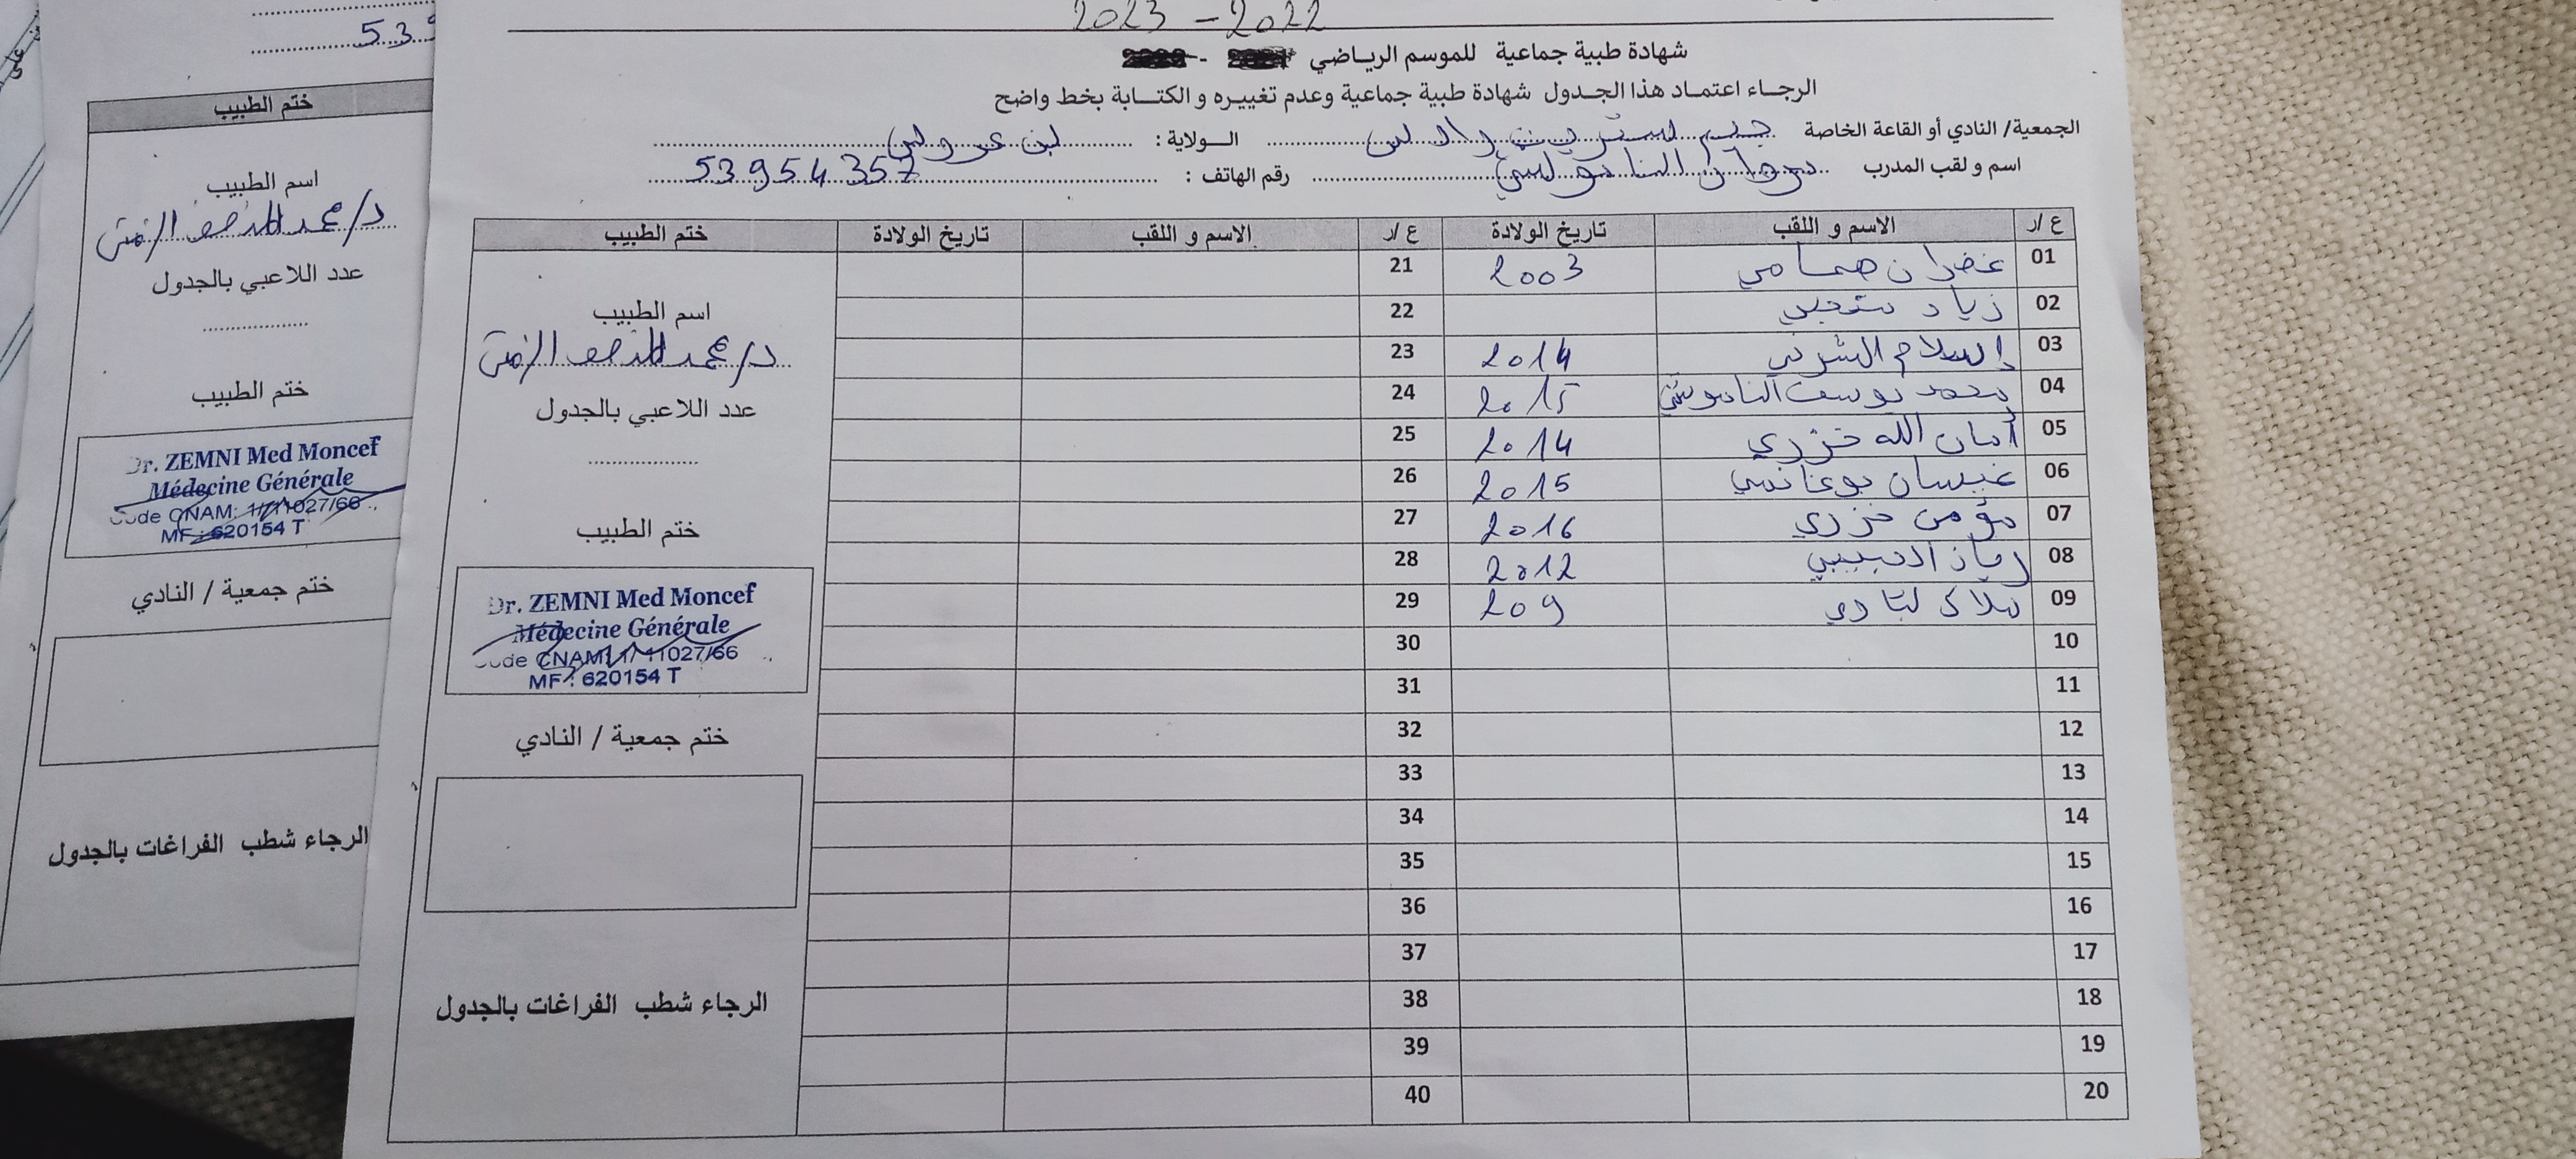 2023 - 2022
شهادة طبية جماعية للموسم الرياضي
الرجاء اعتماد هذا الجدول شهادة طبية جماعية وعدم تغييره و الكتابة بخط واضح
الجمعية/ النادي أو القاعة الخاصة جيم الولاية : بن عروس
اسم و لقب المدرب رقم الهاتف : 53954357
ع /ر الاسم و اللقب تاريخ الولادة ع /ر الاسم و اللقب تاريخ الولادة ختم الطبيب
01 غفران همامي 2003 21
02 زياد 22
03 إسلام الشرفي 2014 23
04 محمد يوسف 2015 24
05 أمان الله خزري 2014 25
06 غيسان بوغانمي 2015 26
07 مؤمن خزري 2016 27
08 2012 28
09 ملاك 209 29
10 30
11 31
12 32
13 33
14 34
15 35
16 36
17 37
18 38
19 39
20 40
اسم الطبيب
د/محمد المنصف الزمني
عدد اللاعبي بالجدول
ختم الطبيب
Dr. ZEMNI Med Moncef
Médecine Générale
Code CNAM: 1/11027/66
MF : 620154 T
ختم جمعية / النادي
الرجاء شطب الفراغات بالجدول
539
ختم الطبيب
اسم الطبيب
د/محمد المنصف الزمني
عدد اللاعبي بالجدول
ختم الطبيب
Dr. ZEMNI Med Moncef
Médecine Générale
Code CNAM: 1/11027/66
MF : 620154 T
ختم جمعية / النادي
الرجاء شطب الفراغات بالجدول